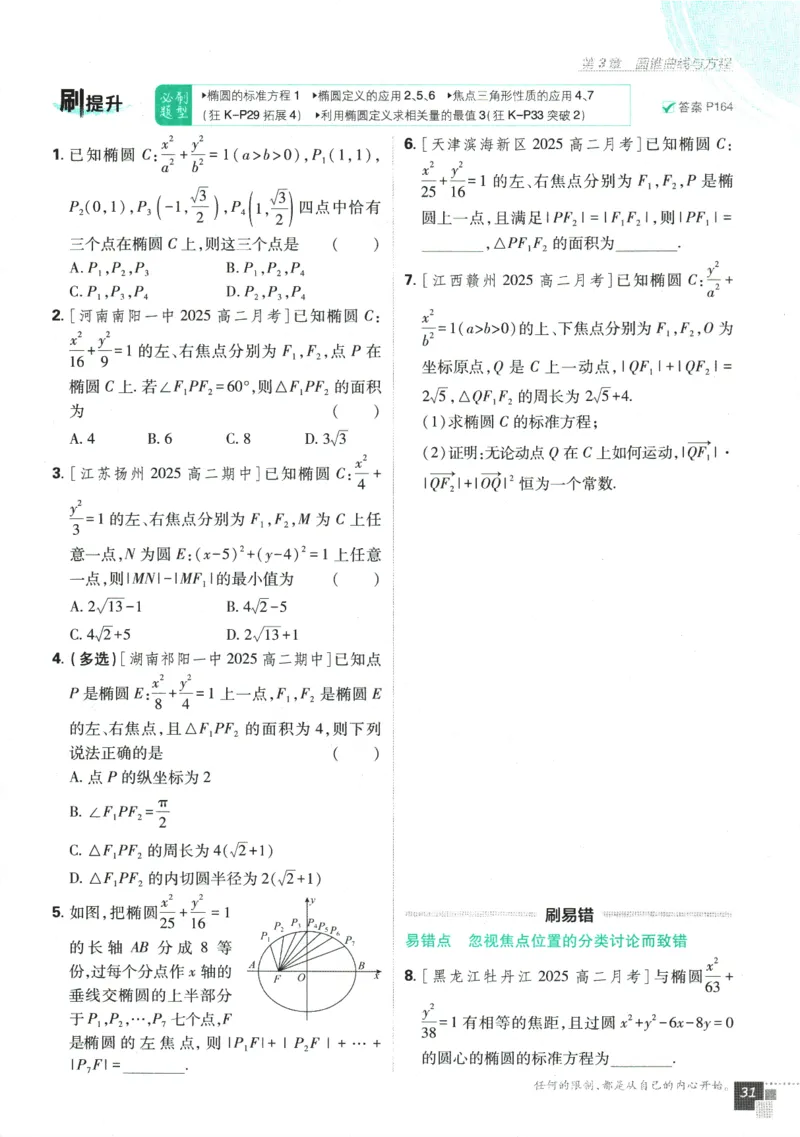 第3章 圆锥曲线与方程
刷提升
必刷题型
▸椭圆的标准方程1 ▸椭圆定义的应用2、5、6 ▸焦点三角形性质的应用4、7
(狂K-P29拓展4) ▸利用椭圆定义求相关量的最值3(狂K-P33突破2)
答案P164
1. 已知椭圆 C: x²/a² + y²/b² = 1(a>b>0), P₁(1,1),
P₂(0,1), P₃(-1, √3/2), P₄(1, √3/2)四点中恰有
三个点在椭圆 C 上,则这三个点是 ( )
A. P₁,P₂,P₃ B. P₁,P₂,P₄
C. P₁,P₃,P₄ D. P₂,P₃,P₄
2. [河南南阳一中 2025 高二月考]已知椭圆 C:
x²/16 + y²/9 = 1 的左、右焦点分别为 F₁,F₂,点 P 在
椭圆 C 上. 若∠F₁PF₂=60°,则△F₁PF₂ 的面积
为 ( )
A. 4 B. 6 C. 8 D. 3√3
3. [江苏扬州 2025 高二期中]已知椭圆 C: x²/4 +
y²/3 = 1 的左、右焦点分别为 F₁,F₂,M 为 C 上任
意一点,N 为圆 E:(x-5)²+(y-4)²=1 上任意
一点,则|MN|-|MF₁|的最小值为 ( )
A. 2√13-1 B. 4√2-5
C. 4√2+5 D. 2√13+1
4. (多选)[湖南祁阳一中 2025 高二期中]已知点
P 是椭圆 E: x²/8 + y²/4 = 1 上一点,F₁,F₂ 是椭圆 E
的左、右焦点,且△F₁PF₂ 的面积为 4,则下列
说法正确的是 ( )
A. 点 P 的纵坐标为 2
B. ∠F₁PF₂= π/2
C. △F₁PF₂ 的周长为 4(√2+1)
D. △F₁PF₂ 的内切圆半径为 2(√2+1)
5. 如图,把椭圆 x²/25 + y²/16 = 1
的长轴 AB 分成 8 等
份,过每个分点作 x 轴的
垂线交椭圆的上半部分
于P₁,P₂,…,P₇ 七个点,F
是椭圆的左焦点,则 |P₁F|+|P₂F|+…+
|P₇F|=________.
y
P₁ P₂ P₃ P₄ P₅ P₆ P₇
A F O B x
6. [天津滨海新区 2025 高二月考]已知椭圆 C:
x²/25 + y²/16 = 1 的左、右焦点分别为 F₁,F₂,P 是椭
圆上一点,且满足|PF₂|=|F₁F₂|,则|PF₁|=
________,△PF₁F₂ 的面积为________.
7. [江西赣州 2025 高二月考]已知椭圆 C: y²/a² +
x²/b² = 1(a>b>0)的上、下焦点分别为 F₁,F₂,O 为
坐标原点,Q 是 C 上一动点,|QF₁|+|QF₂|=
2√5,△QF₁F₂ 的周长为 2√5+4.
(1)求椭圆 C 的标准方程;
(2)证明:无论动点 Q 在 C 上如何运动,|QF₁→|·
|QF₂→|+|OQ→|² 恒为一个常数.
刷易错
易错点 忽视焦点位置的分类讨论而致错
8. [黑龙江牡丹江 2025 高二月考]与椭圆 x²/63 +
y²/38 = 1 有相等的焦距,且过圆 x²+y²-6x-8y=0
的圆心的椭圆的标准方程为________.
任何的限制,都是从自己的内心开始。
31